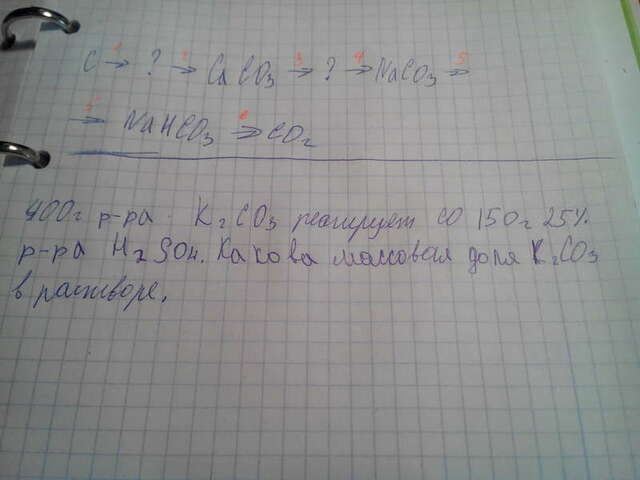 C →¹ ? →² CaCO₃ →³ ? →⁴ NaCO₃ →⁵
→⁵ NaHCO₃ →⁶ CO₂
400г р-ра K₂CO₃ реагирует со 150г 25%
р-ра H₂SO₄. Какова массовая доля K₂CO₃
в растворе.